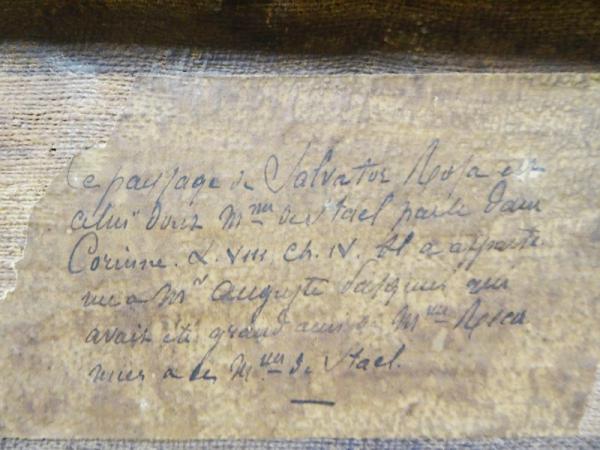 Ce paysage de Salvator Rosa est
celui dont Mme de Stael parle dans
Corinne. L. VIII Ch. IV. Il a apparte
nu a Mr Auguste Pasquier qui
avait été grand ami de Mme Réca
mier et de Mme de Stael.